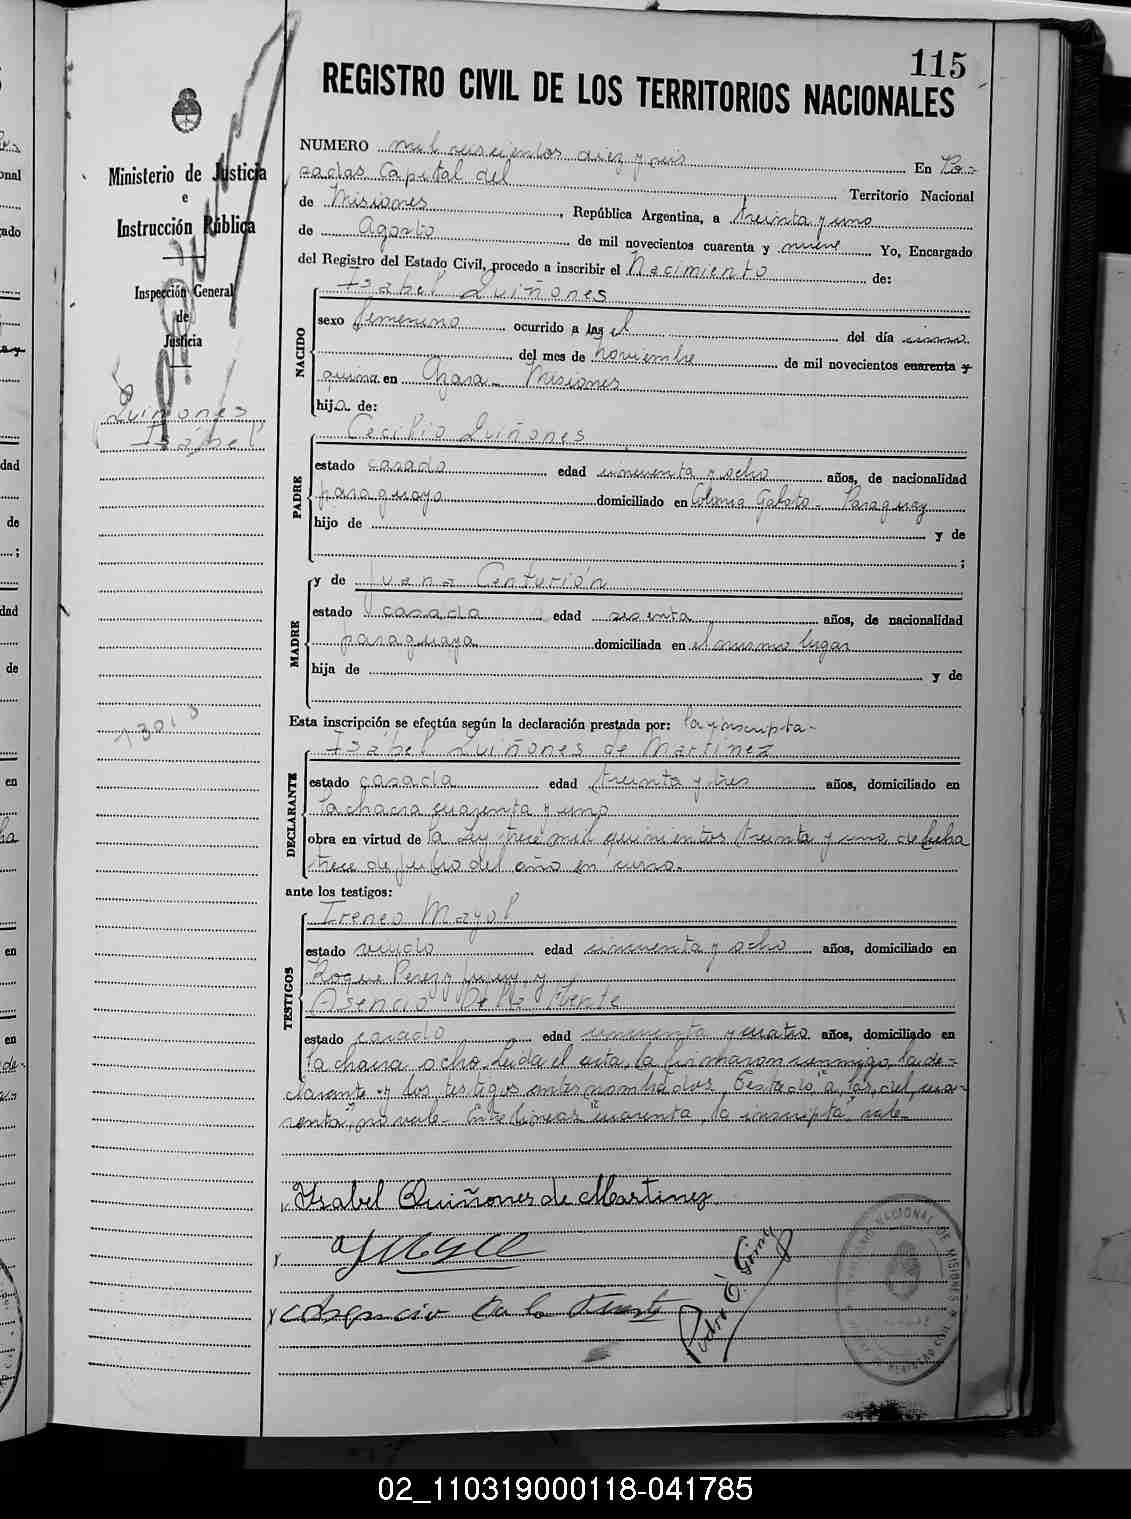 115
REGISTRO CIVIL DE LOS TERRITORIOS NACIONALES
Ministerio de Justicia
e
Instrucción Pública
Inspección General
de
Justicia
Quiñones
Isabel
NUMERO mil seiscientos diez y seis En Po-
sadas Capital del Territorio Nacional
de Misiones, República Argentina, a treinta y uno
de Agosto de mil novecientos cuarenta y nueve Yo, Encargado
del Registro del Estado Civil, procedo a inscribir el Nacimiento de:
NACIDO
Isabel Quiñones
sexo femenino ocurrido a las el del día cinco
del mes de noviembre de mil novecientos cuarenta y
quince en Azara - Misiones
hija de:
PADRE
Cecilio Quiñones
estado casado edad cincuenta y ocho años, de nacionalidad
paraguayo domiciliado en Colonia Gaboto - Paraguay
hijo de y de
;
MADRE
y de Juana Centurión
estado casada edad sesenta años, de nacionalidad
paraguaya domiciliada en el mismo lugar
hija de y de
Esta inscripción se efectúa según la declaración prestada por: la inscripta-
DECLARANTE
Isabel Quiñones de Martinez
estado casada edad treinta y tres años, domiciliado en
la chacra cuarenta y uno
obra en virtud de la Ley trece mil quinientos treinta y uno de fecha
trece de julio del año en curso.
ante los testigos:
TESTIGOS
Ireneo Mayol
estado viudo edad cincuenta y ocho años, domiciliado en
Roque Perez y Jujuy, y
Asencio De la Fuente
estado casado edad cincuenta y cuatro años, domiciliado en
la chacra ocho. Leida el acta, la firmaron conmigo, la de-
clarante y los testigos antes nombrados. Testado "a, las, del, cua-
renta", no vale - Entre líneas "cuarenta, la inscripta" vale-
Isabel Quiñones de Martinez
y
y Asencio De la Fuente
02_110319000118-041785